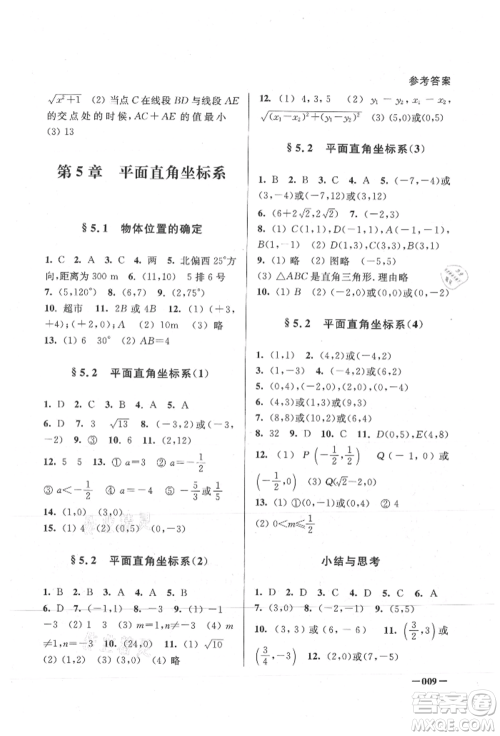 参考答案
√x²+1 (2) 当点 C 在线段 BD 与线段 AE
的交点处的时候, AC+AE 的值最小
(3) 13
第5章 平面直角坐标系
§5.1 物体位置的确定
1. C 2. A 3. B 4. 两 5. 北偏西25°方
向,距离为 300 m 6. (11,10) 5 排 6 号
7. (5,120°) 8. (6,7) 9. (2,75°)
10. 超市 11. 2B 或 4B 12. (1) (+3,
+4); (+2,0); A (2) 10m (3) 略
13. (1) 6 30° (2) AB=4
§5.2 平面直角坐标系(1)
1. D 2. C 3. B 4. A 5. A
6. D 7. 3 √13 8. (-3,2)或(-3,
-2) 9. ③ 10. (-5,4) 11. (-2,3)
12. 5 5 13. ① a=-1/2 ② a>-1/2
③ a<-1/2 ④ -5/3 ⑤ -1/3或1
14. (1) (0,-3) (2) (-4,-5)
15. (1) (4,-2) (2) (1,-8)
§5.2 平面直角坐标系(2)
1. B 2. D 3. C 4. A 5. B
6. D 7. (-1,1) 8. -3 9. m≠1,
n=-3 m=1,n≠-3 10. (24,0) 11. (1) √10
(2) 直角三角形 理由略
12. (1) 4,3,5 (2) y₁-y₂, x₁-x₂,
√(x₁-x₂)²+(y₁-y₂)² (3) (5,0)
§5.2 平面直角坐标系(3)
1. B 2. D 3. D 4. A 5. (3,5)或
(3,-5)或(-3,5)或(-3,-5)
6. (6+2√2,2√2) 7. (-3,1)
8. (1) C(1,1), D(1,-1), A(-1,-1),
B(-1,1) (2) D(0,5), E(4,8)
9. (1) 略 (2) 图略
(3) △ABC 是直角三角形.理由略
10. (1) (1,-2) (2) (0,4)或(0,-4)
§5.2 平面直角坐标系(4)
1. (1,1) 2. (-3,2)或(-4,2)
3. (1,-3) 4. (-2,2)或(8,2)
5. (-4,2) 6. (4,2)或(-4,-2)
7. (8,8)或(20,-20)
8. 32 9. D 10. C 11. B
12. (1) P(-1/2,0)或
(-1/2,3) (2) Q(√2-2,0)
13. (1) (-1,0) (2) ① 0 ② 4
(2) 0<m≤1/2
小结与思考
1. D 2. D 3. C 4. B 5. A 6. D
7. (3,0) 8. (-3,-1) 9. (7,4)
10. (3,3)或(6,-6) 11. (3/4,3)或
(3/4,-1) 12. (1,-2)或(7,-5)
—009—